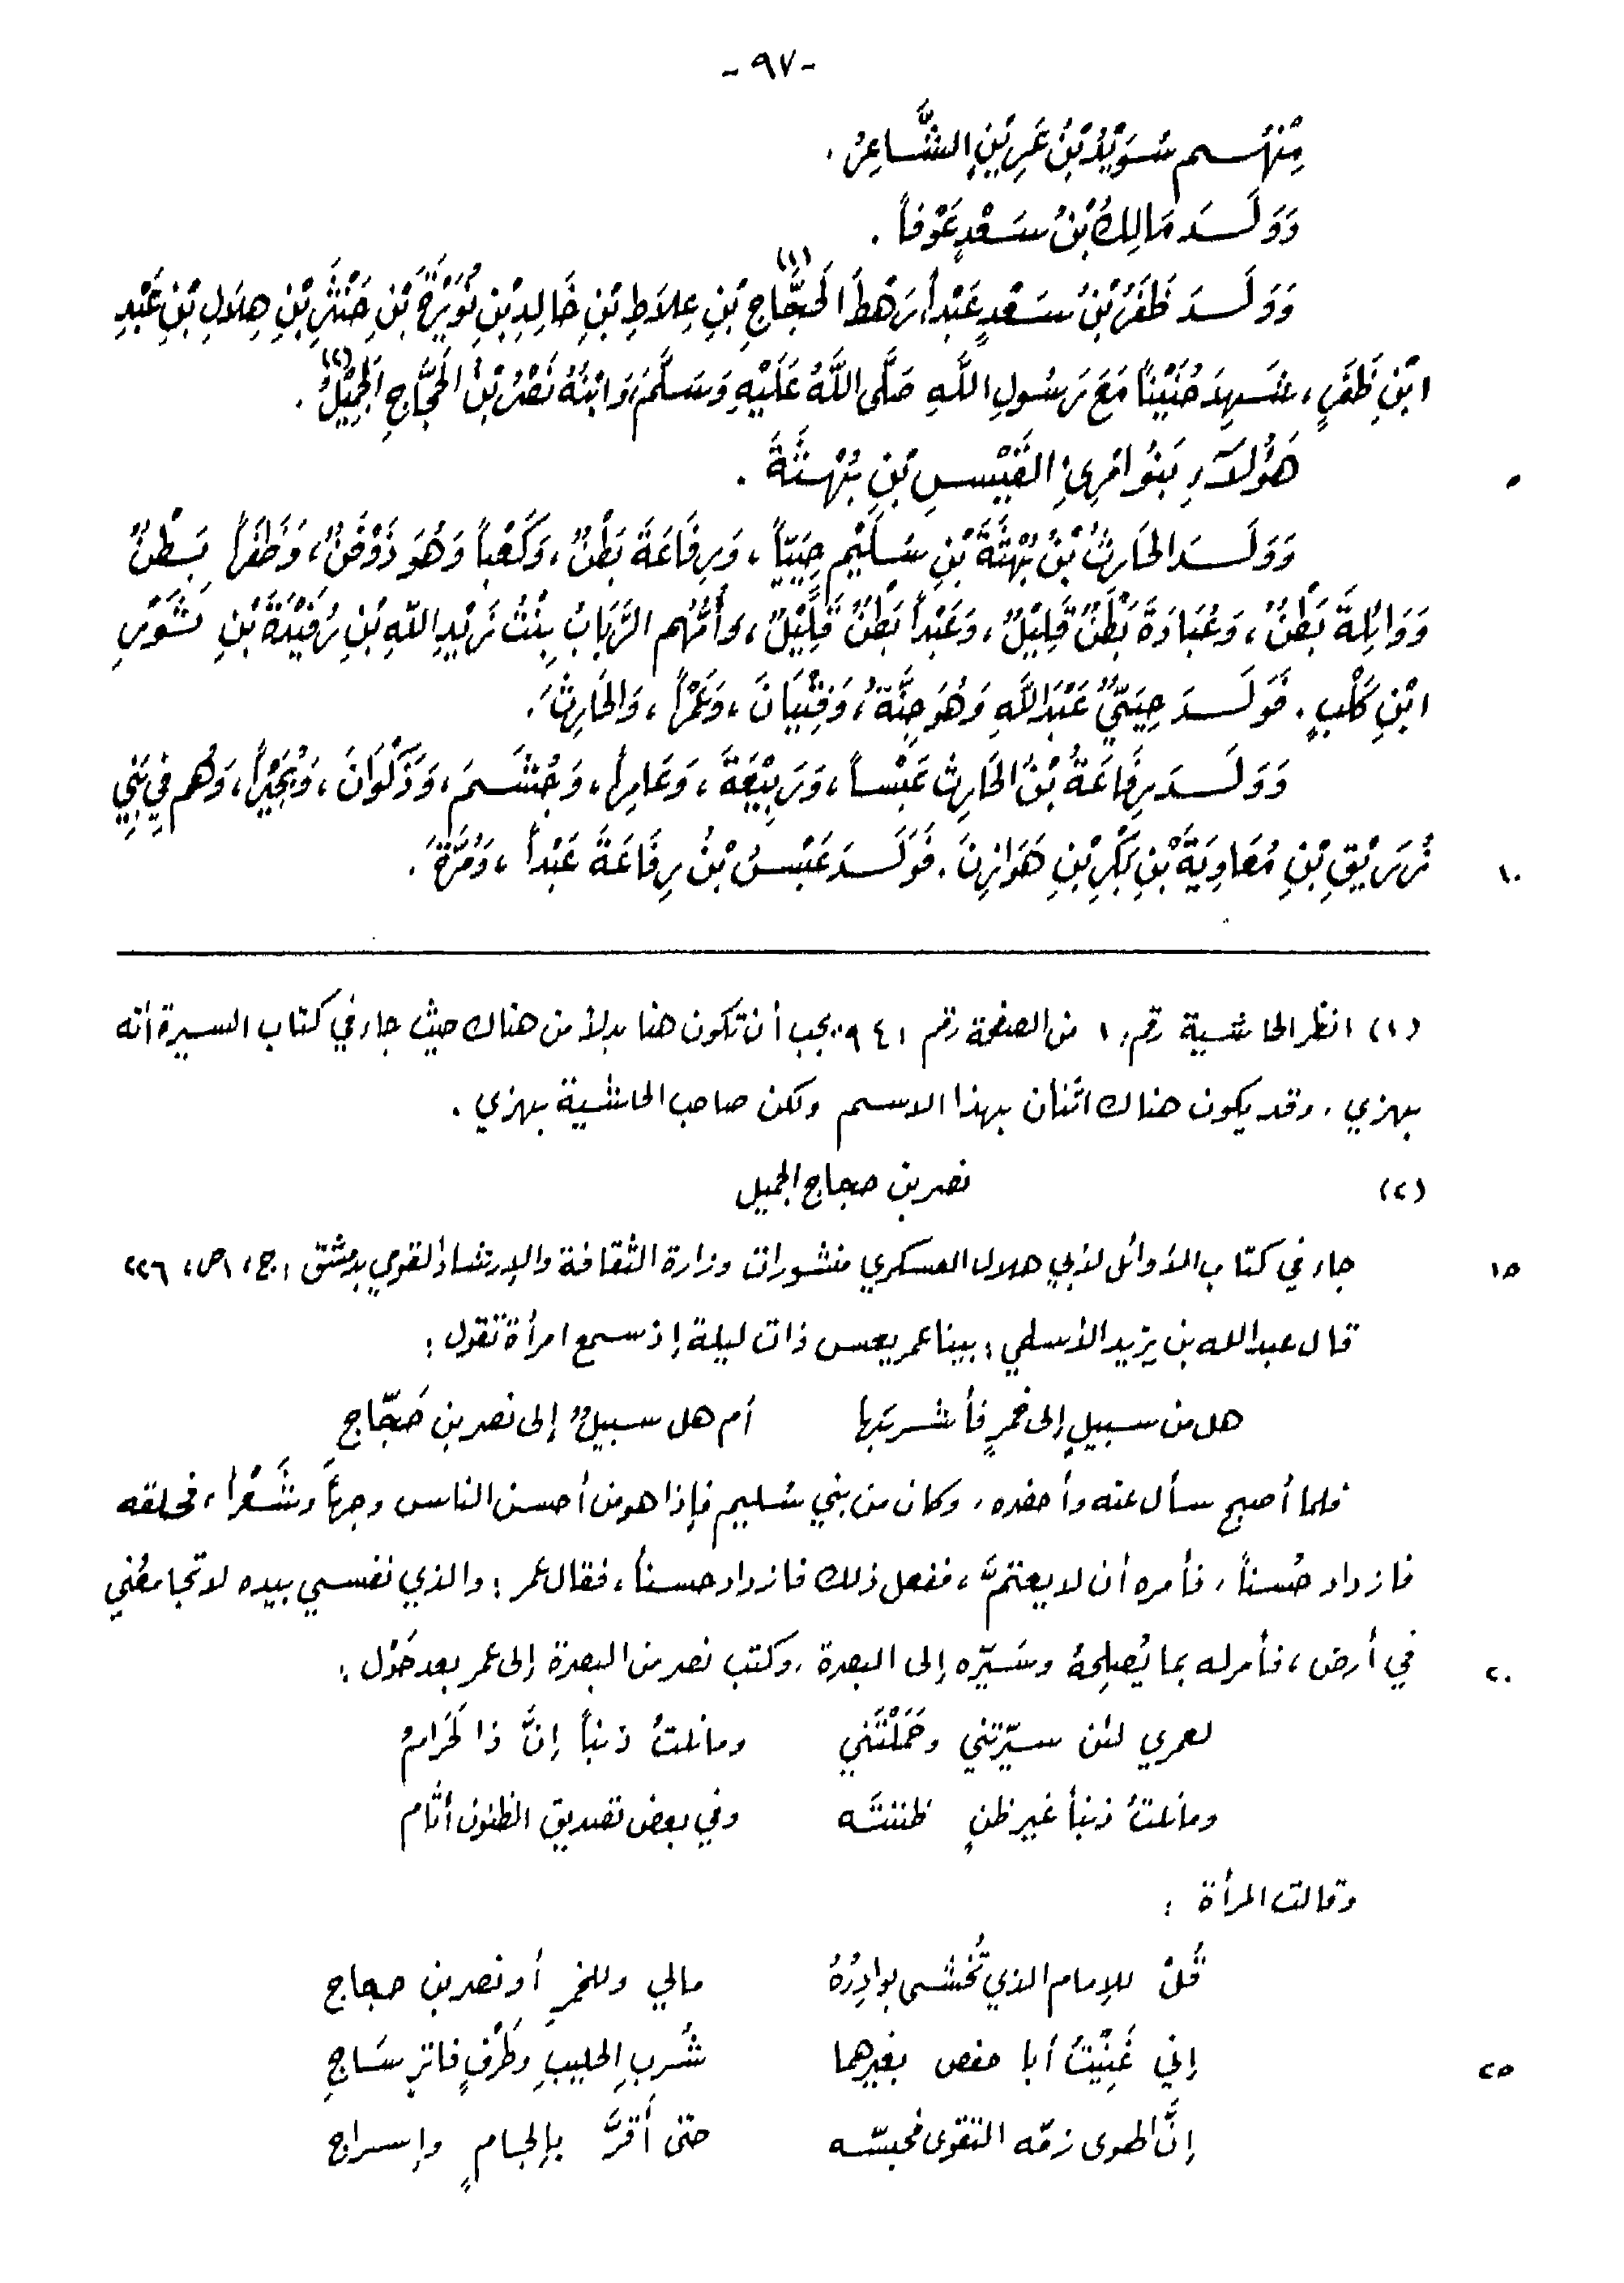 -٩٧-
مِنْهُم سُوَيْدُ بْنُ عَرِيْنٍ الشَّاعِرُ .
وَوَلَدَ مَالِكُ بْنُ سَعْدٍ عَوْفاً .
وَوَلَدَ ظَفَرُ بْنُ سَعْدٍ عَبْداً، رَهْطَ الحَجَّاجِ (١) بْنِ عِلَاطِ بْنِ خَالِدِ بْنِ نُوَيْرَةَ بْنِ حَنْثَرِ بْنِ هِلَالِ بْنِ عَبْدِ
ابْنِ ظَفَرٍ، شَهِدَ حُنَيْناً مَعَ رَسُولِ اللَّهِ صَلَّى اللَّهُ عَلَيْهِ وَسَلَّمَ، وَابْنَهُ نَصْرُ بْنُ الحَجَّاجِ الجَمِيْلُ (٢) .
هَؤُلَاءِ بَنُو امْرِئِ القَيْسِ بْنِ بُهْثَةَ . ٥
وَوَلَدَ الحَارِثُ بْنُ بُهْثَةَ بْنِ سُلَيْمٍ حِيَيّاً، وَرِفَاعَةَ بَطْنٌ، وَكَعْباً وَهُوَ ذَوْفَنٌ، وَظَفَراً بَطْنٌ
وَوَائِلةَ بَطْنٌ، وَعُبَادَةَ بَطْنٌ قَلِيْلٌ، وَعَبْداً بَطْنٌ قَلِيْلٌ، وَأُمُّهُم الرَّبَابُ بِنْتُ زَيْدِ اللهِ بْنِ رُفَيْدَةَ بْنِ ثَوْرِ
ابْنِ كَلْبٍ . فَوَلَدَ حِيَيٌّ عَبْدَ اللَّهِ وَهُوَ جِنَّةُ، وَفِتْيَانَ، وَعَمْراً، وَالحَارِثَ .
وَوَلَدَ رِفَاعَةُ بْنُ الحَارِثِ عَبْساً، وَرَبِيْعَةَ، وَعَامِراً، وَجُشَمَ، وَذَكْوَانَ، وَبُجَيْراً، وَهُم فِي بَنِي
زُرَيْقِ بْنِ مُعَاوِيَةَ بْنِ بَكْرِ بْنِ هَوَازِنَ . فَوَلَدَ عَبْسُ بْنُ رِفَاعَةَ عَبْداً، وَمُرَّةَ . ١٠
(١) انظر الحاشية رقم ١، من الصفحة رقم ٩٤١، يجب أن تكون هنا بدلاً من هناك حيث جاء في كتاب السيرة أنه
بهزي . وقد يكون هناك اثنان بهذا الاسم ولكن صاحب الحاشية بهزي .
(٢) نصر بن حجاج الجميل
جاء في كتاب الأوائل لأبي هلال العسكري منشورات وزارة الثقافة والإرشاد القومي بدمشق، ج، ١ ص، ٢٢٦ ١٥
قال عبدالله بن يزيد الأسلمي : بينا عمر يعس ذات ليلة إذ سمع امرأة تقول :
هل من سبيلٍ إلى خمرٍ فأشربَها أم هل سبيلٌ إلى نصر بنِ حَجّاجِ
فلما أصبح سأل عنه وأحضره، وكان من بني سُليم فإذا هو من أحسن الناس وجهاً وشَعْراً، فحلقه
فازداد حُسناً، فأمره أن لا يعتمَّ، ففعل ذلك فازداد حسناً، فقال عمر : والذي نفسي بيده لا تجامعُني
في أرض، فأمر له بما يُصلِحهُ وسَيّره إلى البصرة، وكتب نصر من البصرة إلى عمر بعد حَوْل : ٢٠
لعمري لئن سيّرتني وحَمَلْتَني وما نلتُ ذنباً إنَّ ذا لَحَرامُ
وما نلتُ ذنباً غير ظنٍ ظننتَه وفي بعض تصديق الظنون أثام
وقالت المرأة :
قُلْ للإمام الذي تُخشى بوادِرُهُ مالي وللخمرِ أو نصر بن حجاج
إني غَنِيْتُ أبا حفص بغيرهما شُربِ الحليبِ وطَرْفٍ فاترٍ سَاجِ ٢٥
إنَّ الهوى زمّه التقوى فحبسّه حتى أقرَّ بإلجامٍ وإسراج